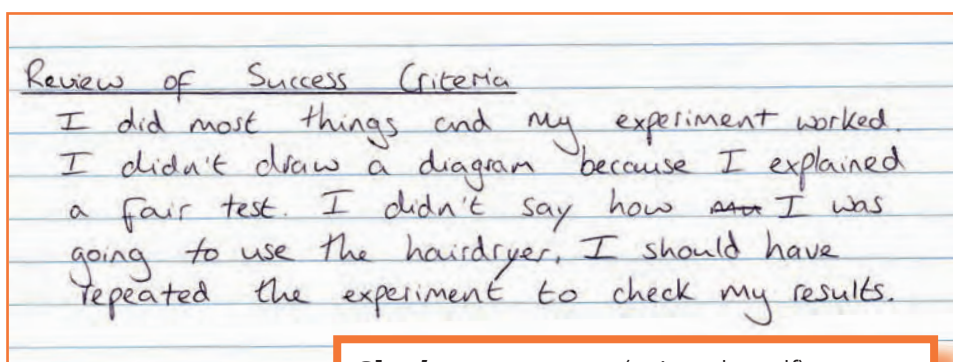 Review of Success Criteria
I did most things and my experiment worked.
I didn't draw a diagram because I explained
a fair test. I didn't say how I was
going to use the hairdryer, I should have
repeated the experiment to check my results.